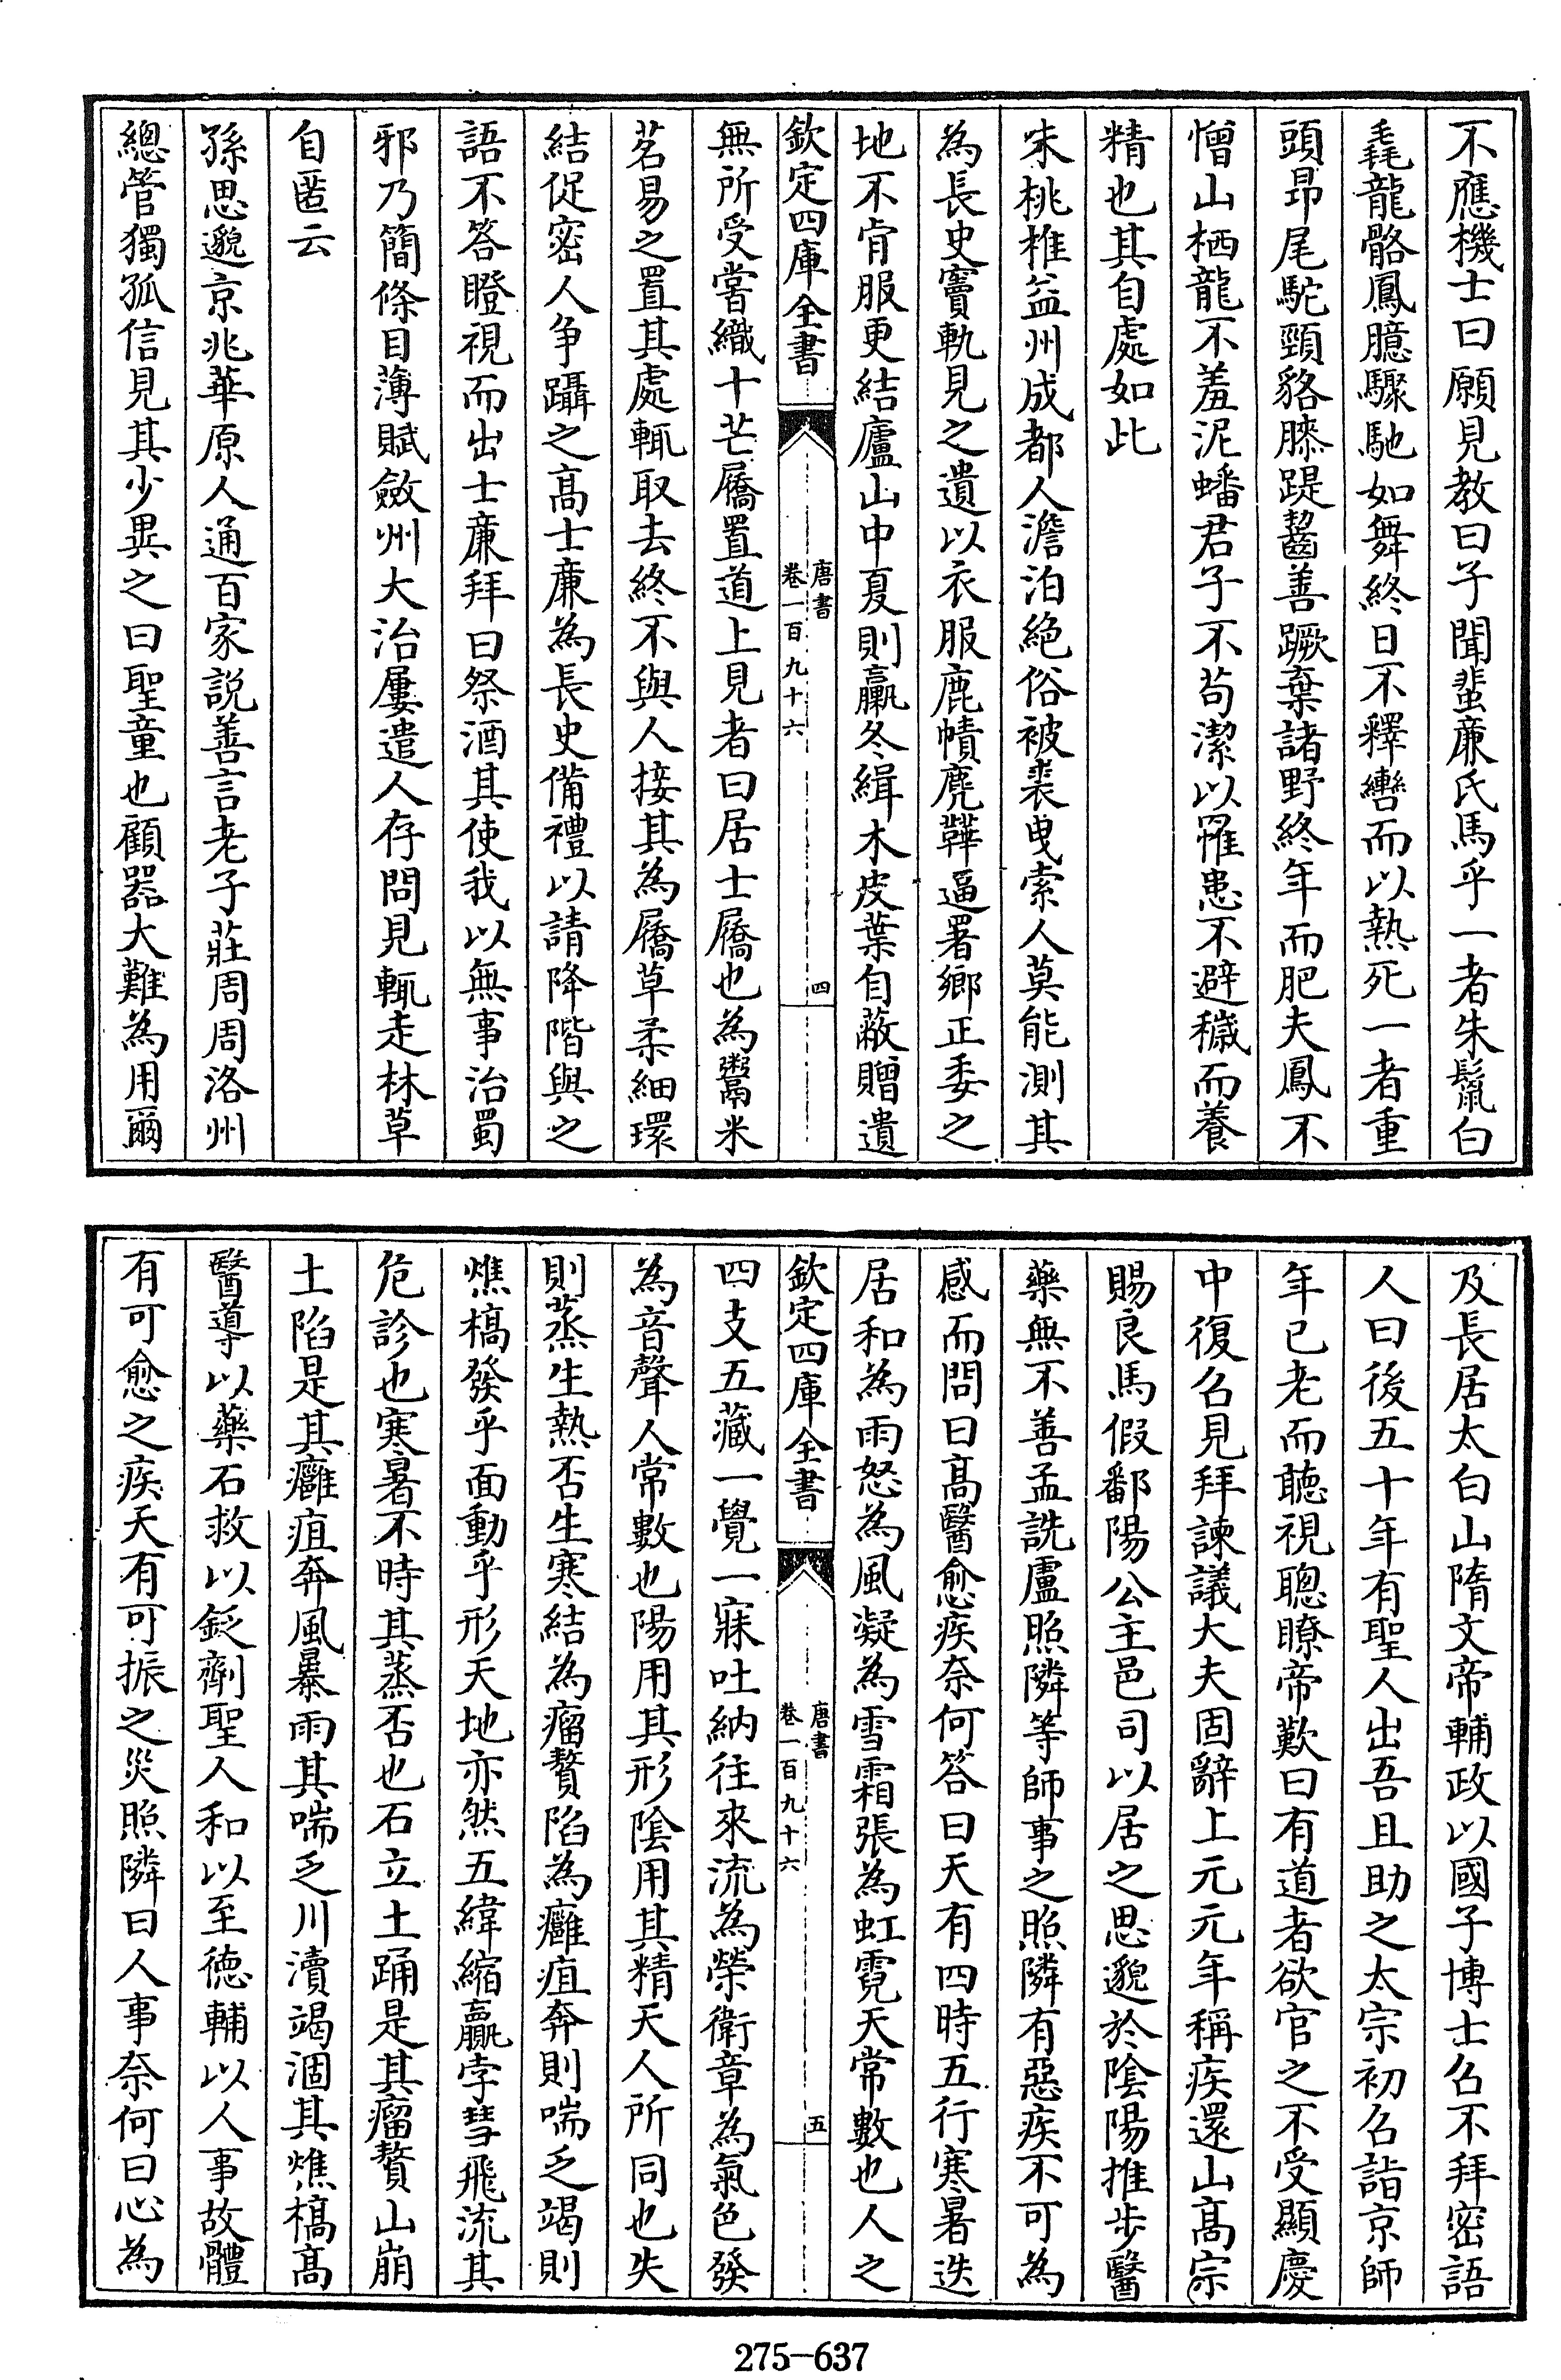 不應機士曰願見教曰子聞蜚廉氏馬乎一者朱鬣白
毳龍骼鳳臆驟馳如舞終日不釋轡而以熱死一者重
頭昂尾駝頸貉膝踶齧善蹶棄諸野終年而肥夫鳳不
憎山栖龍不羞泥蟠君子不苟潔以罹患不避穢而養
精也其自處如此
朱桃椎益州成都人澹泊絶俗被裘曳索人莫能測其
為長史竇軌見之遺以衣服鹿幘麂鞾逼署鄉正委之
地不肯服更結廬山中夏則臝冬緝木皮葉自蔽贈遺
欽定四庫全書
唐書
卷一百九十六
四
無所受嘗織十芒屩置道上見者曰居士屩也為鬻米
茗易之置其處輒取去終不與人接其為屩草柔細環
結促密人争躡之高士廉為長史備禮以請降階與之
語不答瞪視而出士廉拜曰祭酒其使我以無事治蜀
邪乃簡條目薄賦斂州大治屢遣人存問見輒走林草
自匿云
孫思邈京兆華原人通百家說善言老子莊周周洛州
總管獨孤信見其少異之曰聖童也顧器大難為用爾
及長居太白山隋文帝輔政以國子博士召不拜密語
人曰後五十年有聖人出吾且助之太宗初召詣京師
年已老而聽視聰瞭帝歎曰有道者欲官之不受顯慶
中復召見拜諫議大夫固辭上元元年稱疾還山高宗
賜良馬假鄱陽公主邑司以居之思邈於陰陽推步醫
藥無不善孟詵盧照隣等師事之照隣有惡疾不可為
感而問曰高醫愈疾奈何答曰天有四時五行寒暑迭
居和為雨怒為風凝為雪霜張為虹霓天常數也人之
欽定四庫全書
唐書
卷一百九十六
五
四支五藏一覺一寐吐納往來流為榮衛章為氣色發
為音聲人常數也陽用其形陰用其精天人所同也失
則蒸生熱否生寒結為瘤贅陷為癰疽奔則喘乏竭則
燋槁發乎面動乎形天地亦然五緯縮贏孛彗飛流其
危診也寒暑不時其蒸否也石立土踊是其瘤贅山崩
土陷是其癰疽奔風暴雨其喘乏川瀆竭涸其燋槁高
醫導以藥石救以鈂劑聖人和以至徳輔以人事故體
有可愈之疾天有可振之災照隣曰人事奈何曰心為
275-637